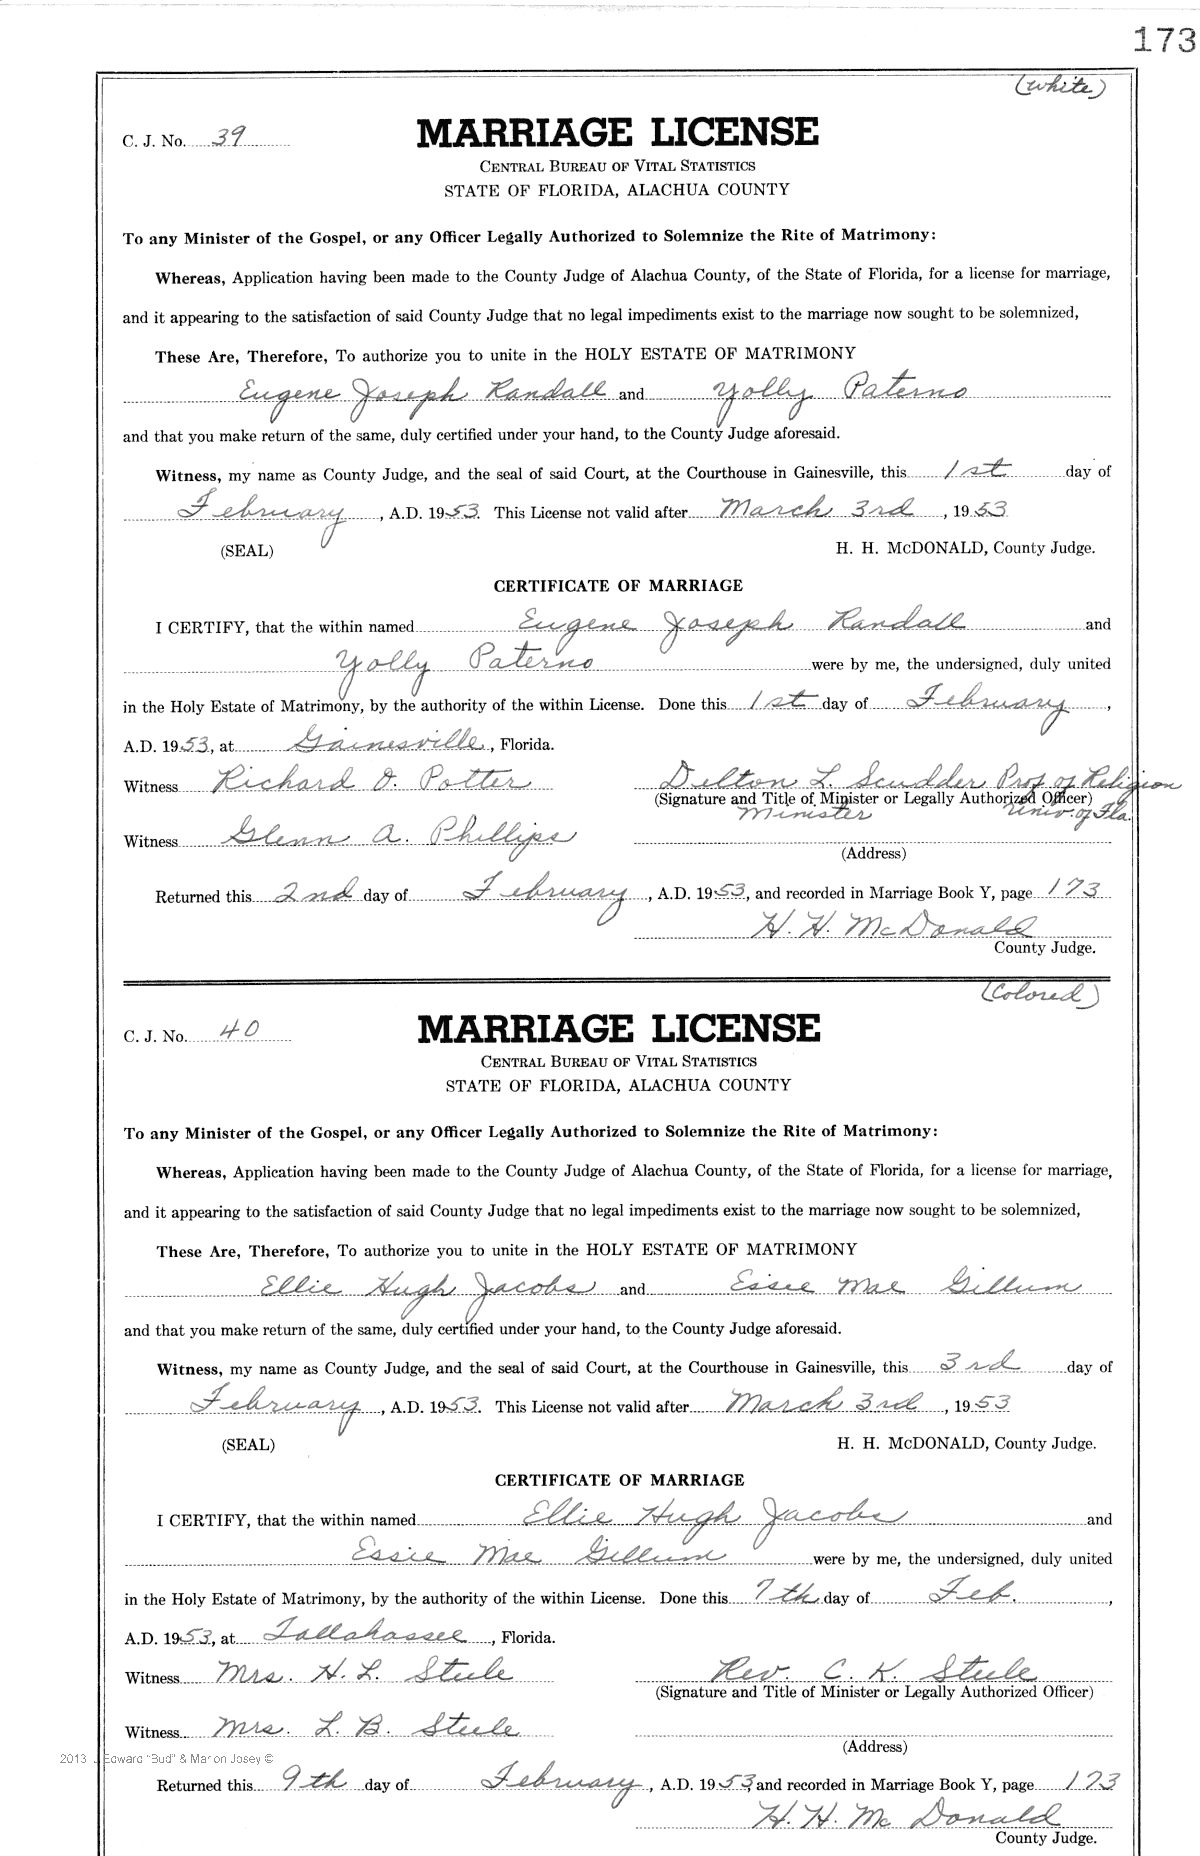 173
(White)
C. J. No. 39
MARRIAGE LICENSE
CENTRAL BUREAU OF VITAL STATISTICS
STATE OF FLORIDA, ALACHUA COUNTY
To any Minister of the Gospel, or any Officer Legally Authorized to Solemnize the Rite of Matrimony:
Whereas, Application having been made to the County Judge of Alachua County, of the State of Florida, for a license for marriage,
and it appearing to the satisfaction of said County Judge that no legal impediments exist to the marriage now sought to be solemnized,
These Are, Therefore, To authorize you to unite in the HOLY ESTATE OF MATRIMONY
Eugene Joseph Randall and Yolly Paterno
and that you make return of the same, duly certified under your hand, to the County Judge aforesaid.
Witness, my name as County Judge, and the seal of said Court, at the Courthouse in Gainesville, this 1st day of
February, A.D. 1953. This License not valid after March 3rd, 1953
(SEAL) H. H. McDONALD, County Judge.
CERTIFICATE OF MARRIAGE
I CERTIFY, that the within named Eugene Joseph Randall and
Yolly Paterno were by me, the undersigned, duly united
in the Holy Estate of Matrimony, by the authority of the within License. Done this 1st day of February,
A.D. 1953, at Gainesville, Florida.
Witness Richard O. Potter Delton L. Scudder Prof. of Religion
(Signature and Title of Minister or Legally Authorized Officer)
Minister Univ. of Fla.
Witness Glenn A. Phillips
(Address)
Returned this 2nd day of February, A.D. 1953, and recorded in Marriage Book Y, page 173
H. H. McDonald
County Judge.
(Colored)
C. J. No. 40
MARRIAGE LICENSE
CENTRAL BUREAU OF VITAL STATISTICS
STATE OF FLORIDA, ALACHUA COUNTY
To any Minister of the Gospel, or any Officer Legally Authorized to Solemnize the Rite of Matrimony:
Whereas, Application having been made to the County Judge of Alachua County, of the State of Florida, for a license for marriage,
and it appearing to the satisfaction of said County Judge that no legal impediments exist to the marriage now sought to be solemnized,
These Are, Therefore, To authorize you to unite in the HOLY ESTATE OF MATRIMONY
Ellie Hugh Jacobs and Essie Mae Gillum
and that you make return of the same, duly certified under your hand, to the County Judge aforesaid.
Witness, my name as County Judge, and the seal of said Court, at the Courthouse in Gainesville, this 3rd day of
February, A.D. 1953. This License not valid after March 3rd, 1953
(SEAL) H. H. McDONALD, County Judge.
CERTIFICATE OF MARRIAGE
I CERTIFY, that the within named Ellie Hugh Jacobs and
Essie Mae Gillum were by me, the undersigned, duly united
in the Holy Estate of Matrimony, by the authority of the within License. Done this 7th day of Feb.,
A.D. 1953, at Tallahassee, Florida.
Witness Mrs. H. L. Steele Rev. C. K. Steele
(Signature and Title of Minister or Legally Authorized Officer)
Witness Mrs. L. B. Steele
(Address)
2013 J. Edward "Bud" & Marion Josey ©
Returned this 9th day of February, A.D. 1953, and recorded in Marriage Book Y, page 173
H. H. Mc Donald
County Judge.